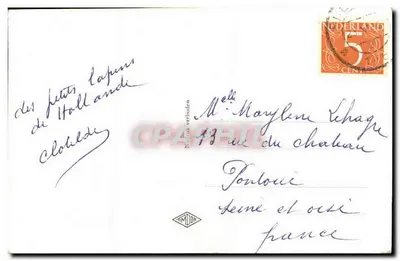 des petits lapins
de Hollande
Clotilde
NEDERLAND
5
CENT
Melle Marylène Lehagre
13 rue du chateau
Pontoise
seine et oise
france
CPARAMA